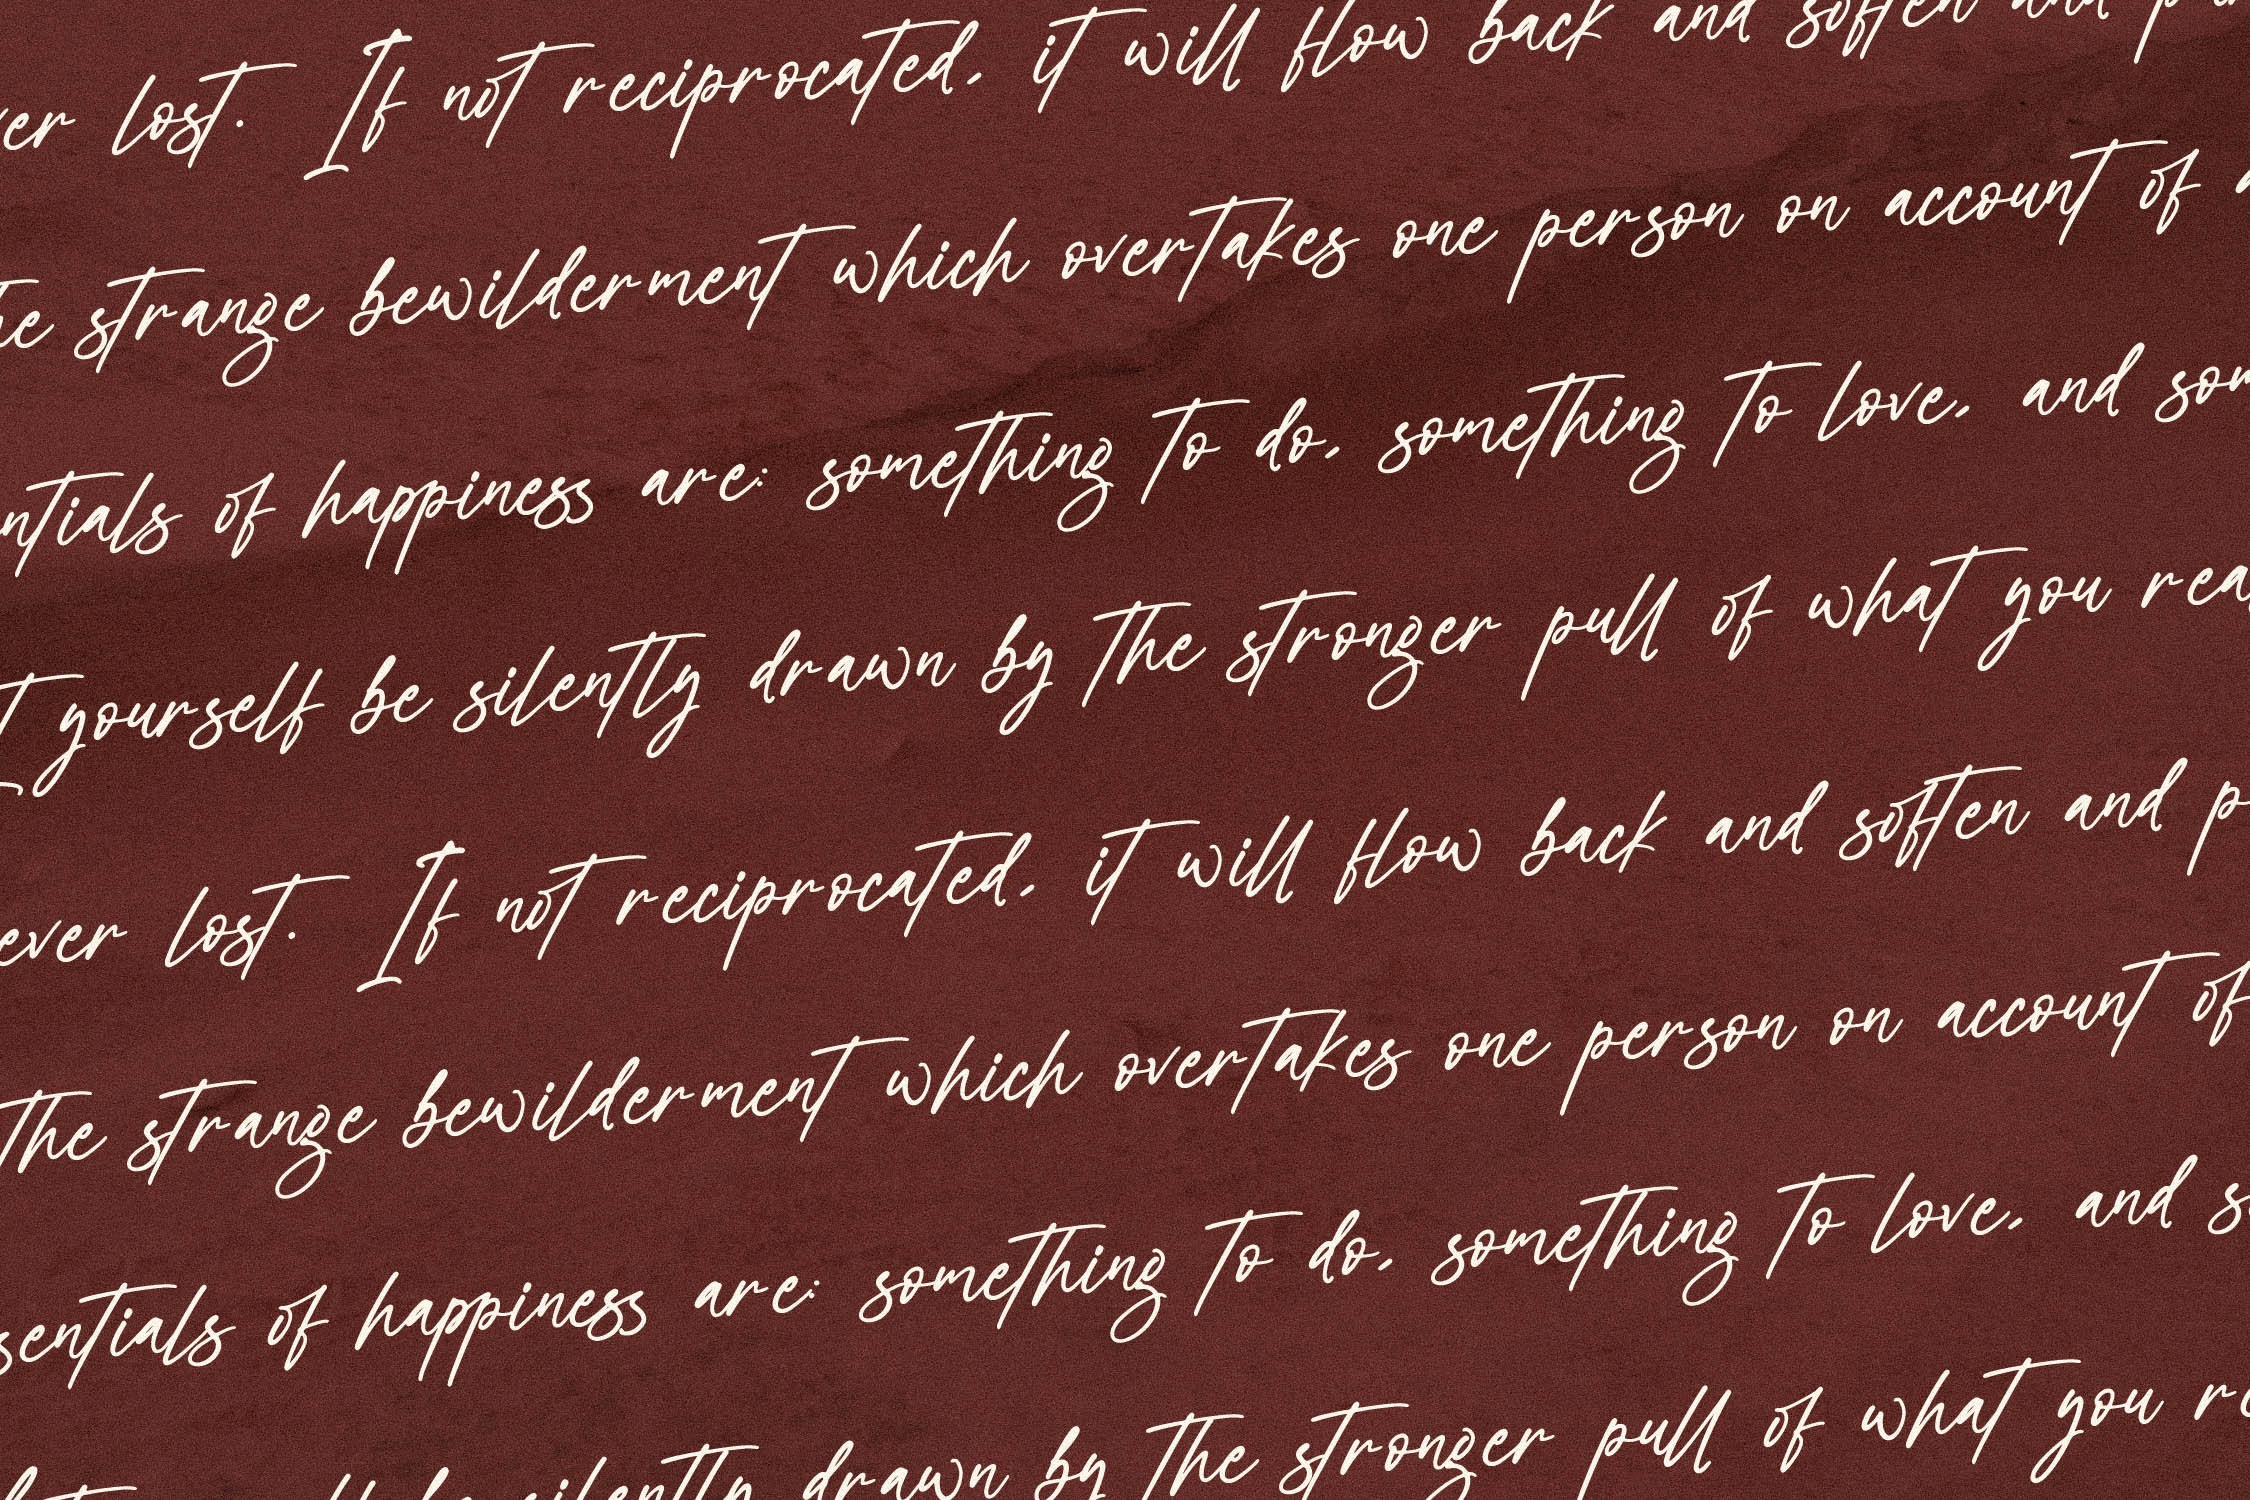 ver lost. If not reciprocated, it will flow back and soften and
the strange bewilderment which overtakes one person on account of
ntials of happiness are: something to do, something to love, and som
t yourself be silently drawn by the stronger pull of what you rea
ever lost. If not reciprocated, it will flow back and soften and p
the strange bewilderment which overtakes one person on account of
sentials of happiness are: something to do, something to love, and s
silently drawn by the stronger pull of what you re